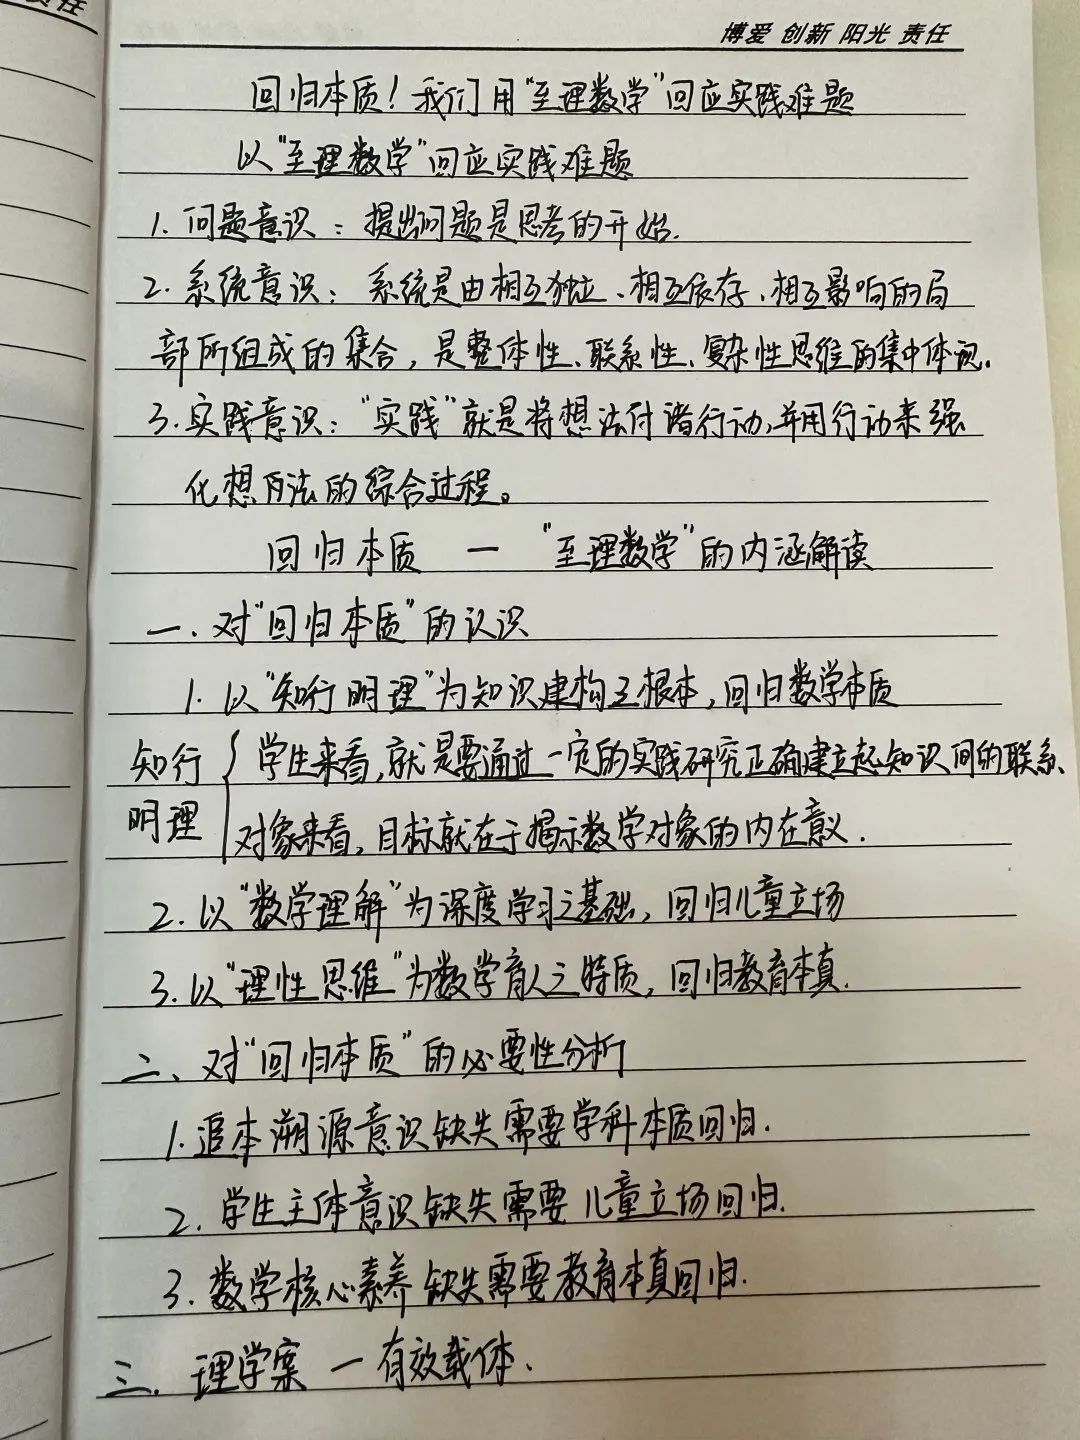 责任
博爱 创新 阳光 责任
回归本质！我们用“至理数学”回应实践难题
以“至理数学”回应实践难题
1. 问题意识：提出问题是思考的开始.
2. 系统意识：系统是由相互独立、相互依存、相互影响的局
部所组成的集合，是整体性、联系性、复杂性思维的集中体现.
3. 实践意识：“实践”就是将想法付诸行动，并用行动来强
化想方法的综合过程。
回归本质 — “至理数学”的内涵解读
一、对“回归本质”的认识
1. 以“知行明理”为知识建构之根本，回归数学本质
知行 学生来看，就是要通过一定的实践研究正确建立起知识间的联系、
明理 对象来看，目标就在于揭示数学对象的内在意义.
2. 以“数学理解”为深度学习之基础，回归儿童立场
3. 以“理性思维”为数学育人之特质，回归教育本真.
二、对“回归本质”的必要性分析
1. 追本溯源意识缺失需要学科本质回归.
2. 学生主体意识缺失需要儿童立场回归.
3. 数学核心素养缺失需要教育本真回归.
三. 理学案 — 有效载体.